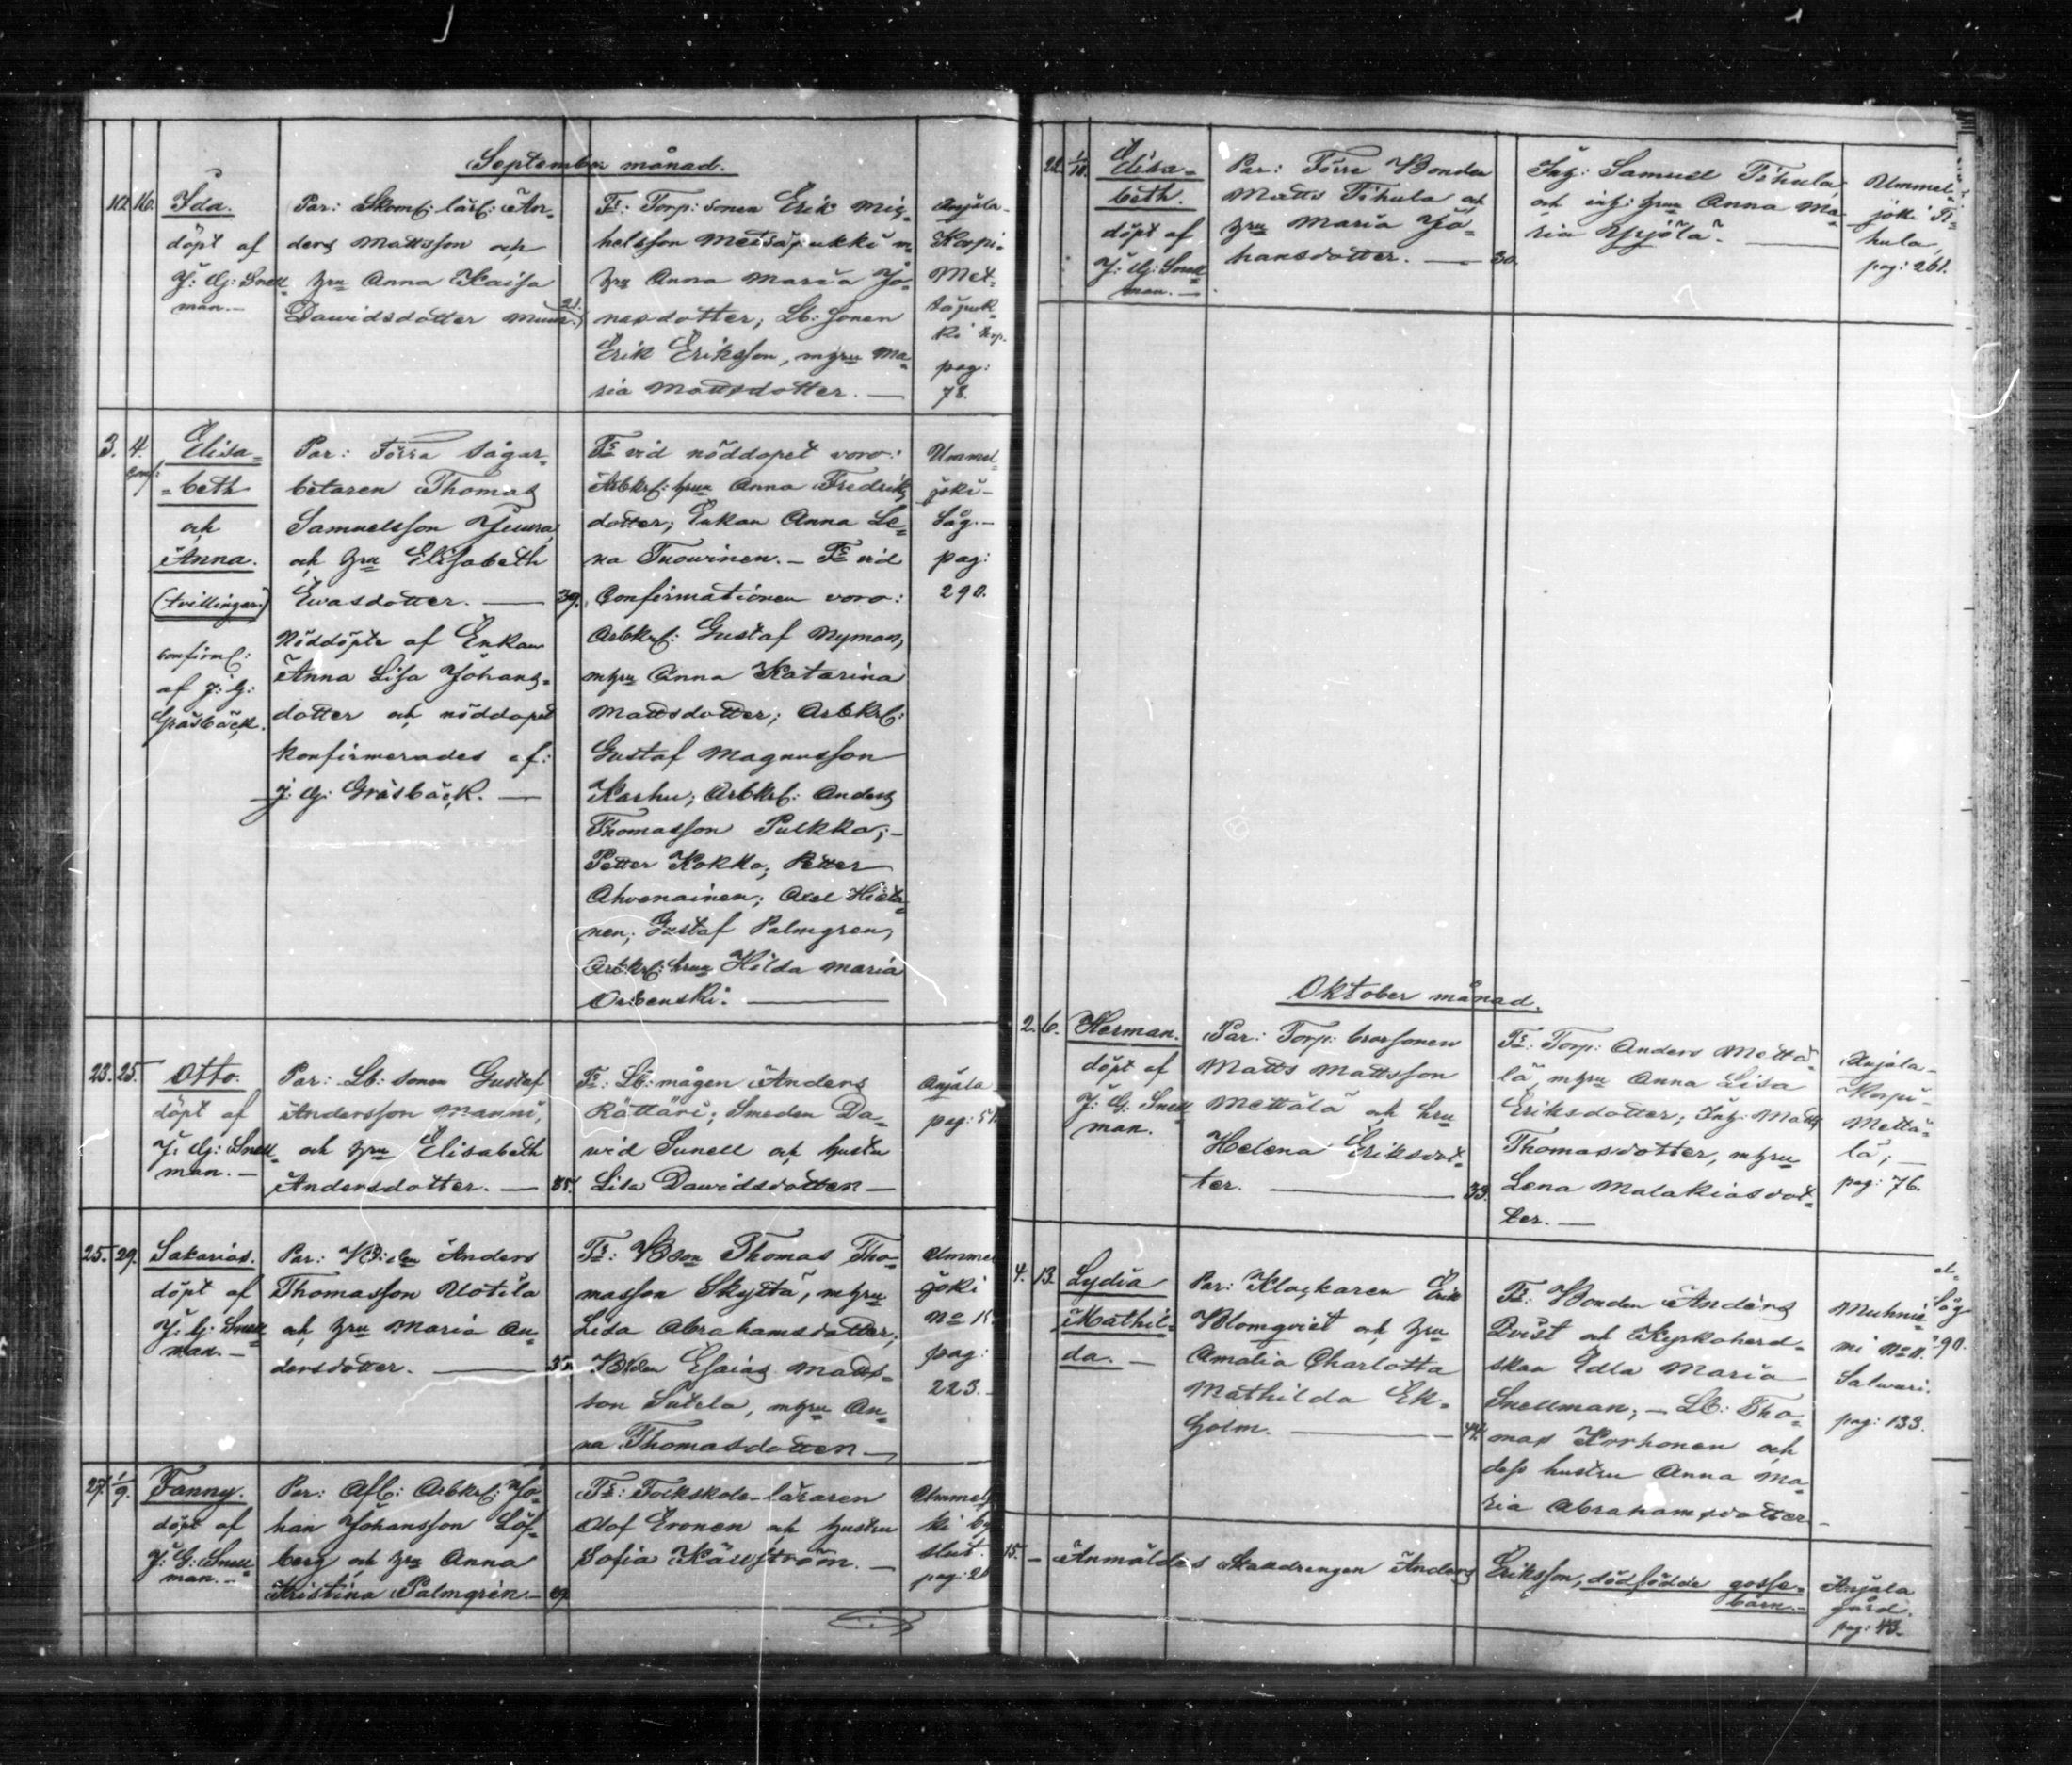 September månad.
12. 16. Ida.
döpt af
J: G: Snell-
man.-
Par: Skom: lärl: An-
ders Mattsson och
hru Anna Kaisa
Dawidsdotter
Ts: Torp: sonen Erik Mic-
helsson Metsäpukki m
hru Anna Maria Jo-
nasdotter; Lb: sonen
Erik Eriksson, m hru Ma-
ria Mattsdotter. —
Anjäla-
Korpi-
Met-
säpuk-
ki torp.
pag:
78.
3. 4.
Conf:
Elisa-
-beth
och
Anna.
(tvillingar.)
confirm:
af J: G:
Gräsbäck.
Par: Förra Sågar-
betaren Thomas
Samuelsson Juura,
och hru Elisabeth
Evasdotter. — 39.
Nöddöpte af Enkan
Anna Lisa Johans-
dotter och nöddopet
konfirmerades af:
J: G: Gräsbäck. —
Ts vid nöddopet voro:
Arbkrl: hrun Anna Fredriks
dotter; Enkan Anna Le-
na Tuovinen. - Ts vid
Confirmationen voro:
Arbkrl: Gustaf Nyman,
m hru Anna Katarina
Mattsdotter; Arbkrl:
Gustaf Magnusson
Karhu; Arbkrl: Anders
Thomasson Pulkka;-
Petter Kokko; Petter
Ahvenainen; Axel Hieta-
nen; Gustaf Palmgren,
Arbkrl: hrun Hilda Maria
Orbenski. —
Ummel-
joki-
Såg.-
pag:
290.
23. 25. Otto.
döpt af
J: G: Snell-
man.-
Par: Lb: sonen Gustaf
Andersson Manni,
och hru Elisabeth
Andersdotter. —
Ts: Lb: mågen Anders
Rättäri; Smeden Da-
vid Sunell och hustru
Lisa Dawidsdotter —
Anjäla
pag: 51.
25. 29. Sakarias.
döpt af
J: G: Snell
man.-
Par: Anders
Thomasson Uotila
och hru Maria An-
dersdotter. —
Ts: Bson Thomas Tho-
masson Skyttä, m hru
Lisa Abrahamsdotter;
Esaias Matts-
son Sutela, m hru An-
na Thomasdotter —
Ummel
joki
No
pag:
223.-
27. 1/9. Fanny.
döpt af
J: G: Snell
man.-
Par: Afl: Arbkrl: Jo-
han Johansson Löf-
berg och hru Anna
Kristina Palmgrén.-
Ts: Folkskole-läraren
Olof Eronen och hustru
Sofia Källström. -
Ummeljo
ki by
slut.
22. 1/10. Elisa-
beth.
döpt af
J: G: Snell
man.-
Par: Förre Bonden
Matts Tihula och
hru Maria Jo-
hansdotter. — 30.
Inh: Samuel Tihula,
och inh: hrun Anna Ma-
ria Yrjölä. —
Ummel-
joki Ti-
hula,
pag: 261.
Oktober månad.
2. 6. Herman.
döpt af
J: G: Snell
man.
Par: Torp: brorsonen
Matts Mattsson
Mettälä och hru
Helena Eriksdot-
ter. — 33.
Ts: Torp: Anders Mettä-
lä, m hru Anna Lisa
Eriksdotter; Inh: Matts
Thomasdotter, m hru
Lena Malakiasdot-
ter. —
Anjala-
Korpi-
Mettä-
lä; —
pag: 76.
4. 13. Lydia
Mathil-
da. -
Par: Klockaren Erik
Blomqvist och hru
Amalia Charlotta
Mathilda Ek-
holm. — 44.
Ts: Bonden Anders
Qvist och Kyrkoherd-
skan Edla Maria
Snellman; - Lb: Tho-
mas Korhonen och
dess hustru Anna Ma-
ria Abrahamsdotter-
Muhnie-
mi No 11.
Salwari.
pag: 133.
Såg
90.
15. - Anmäldes Stalldrengen Anders Eriksson, dödfödde gosse-
barn.-
Anjala
gård.
pag: 43.